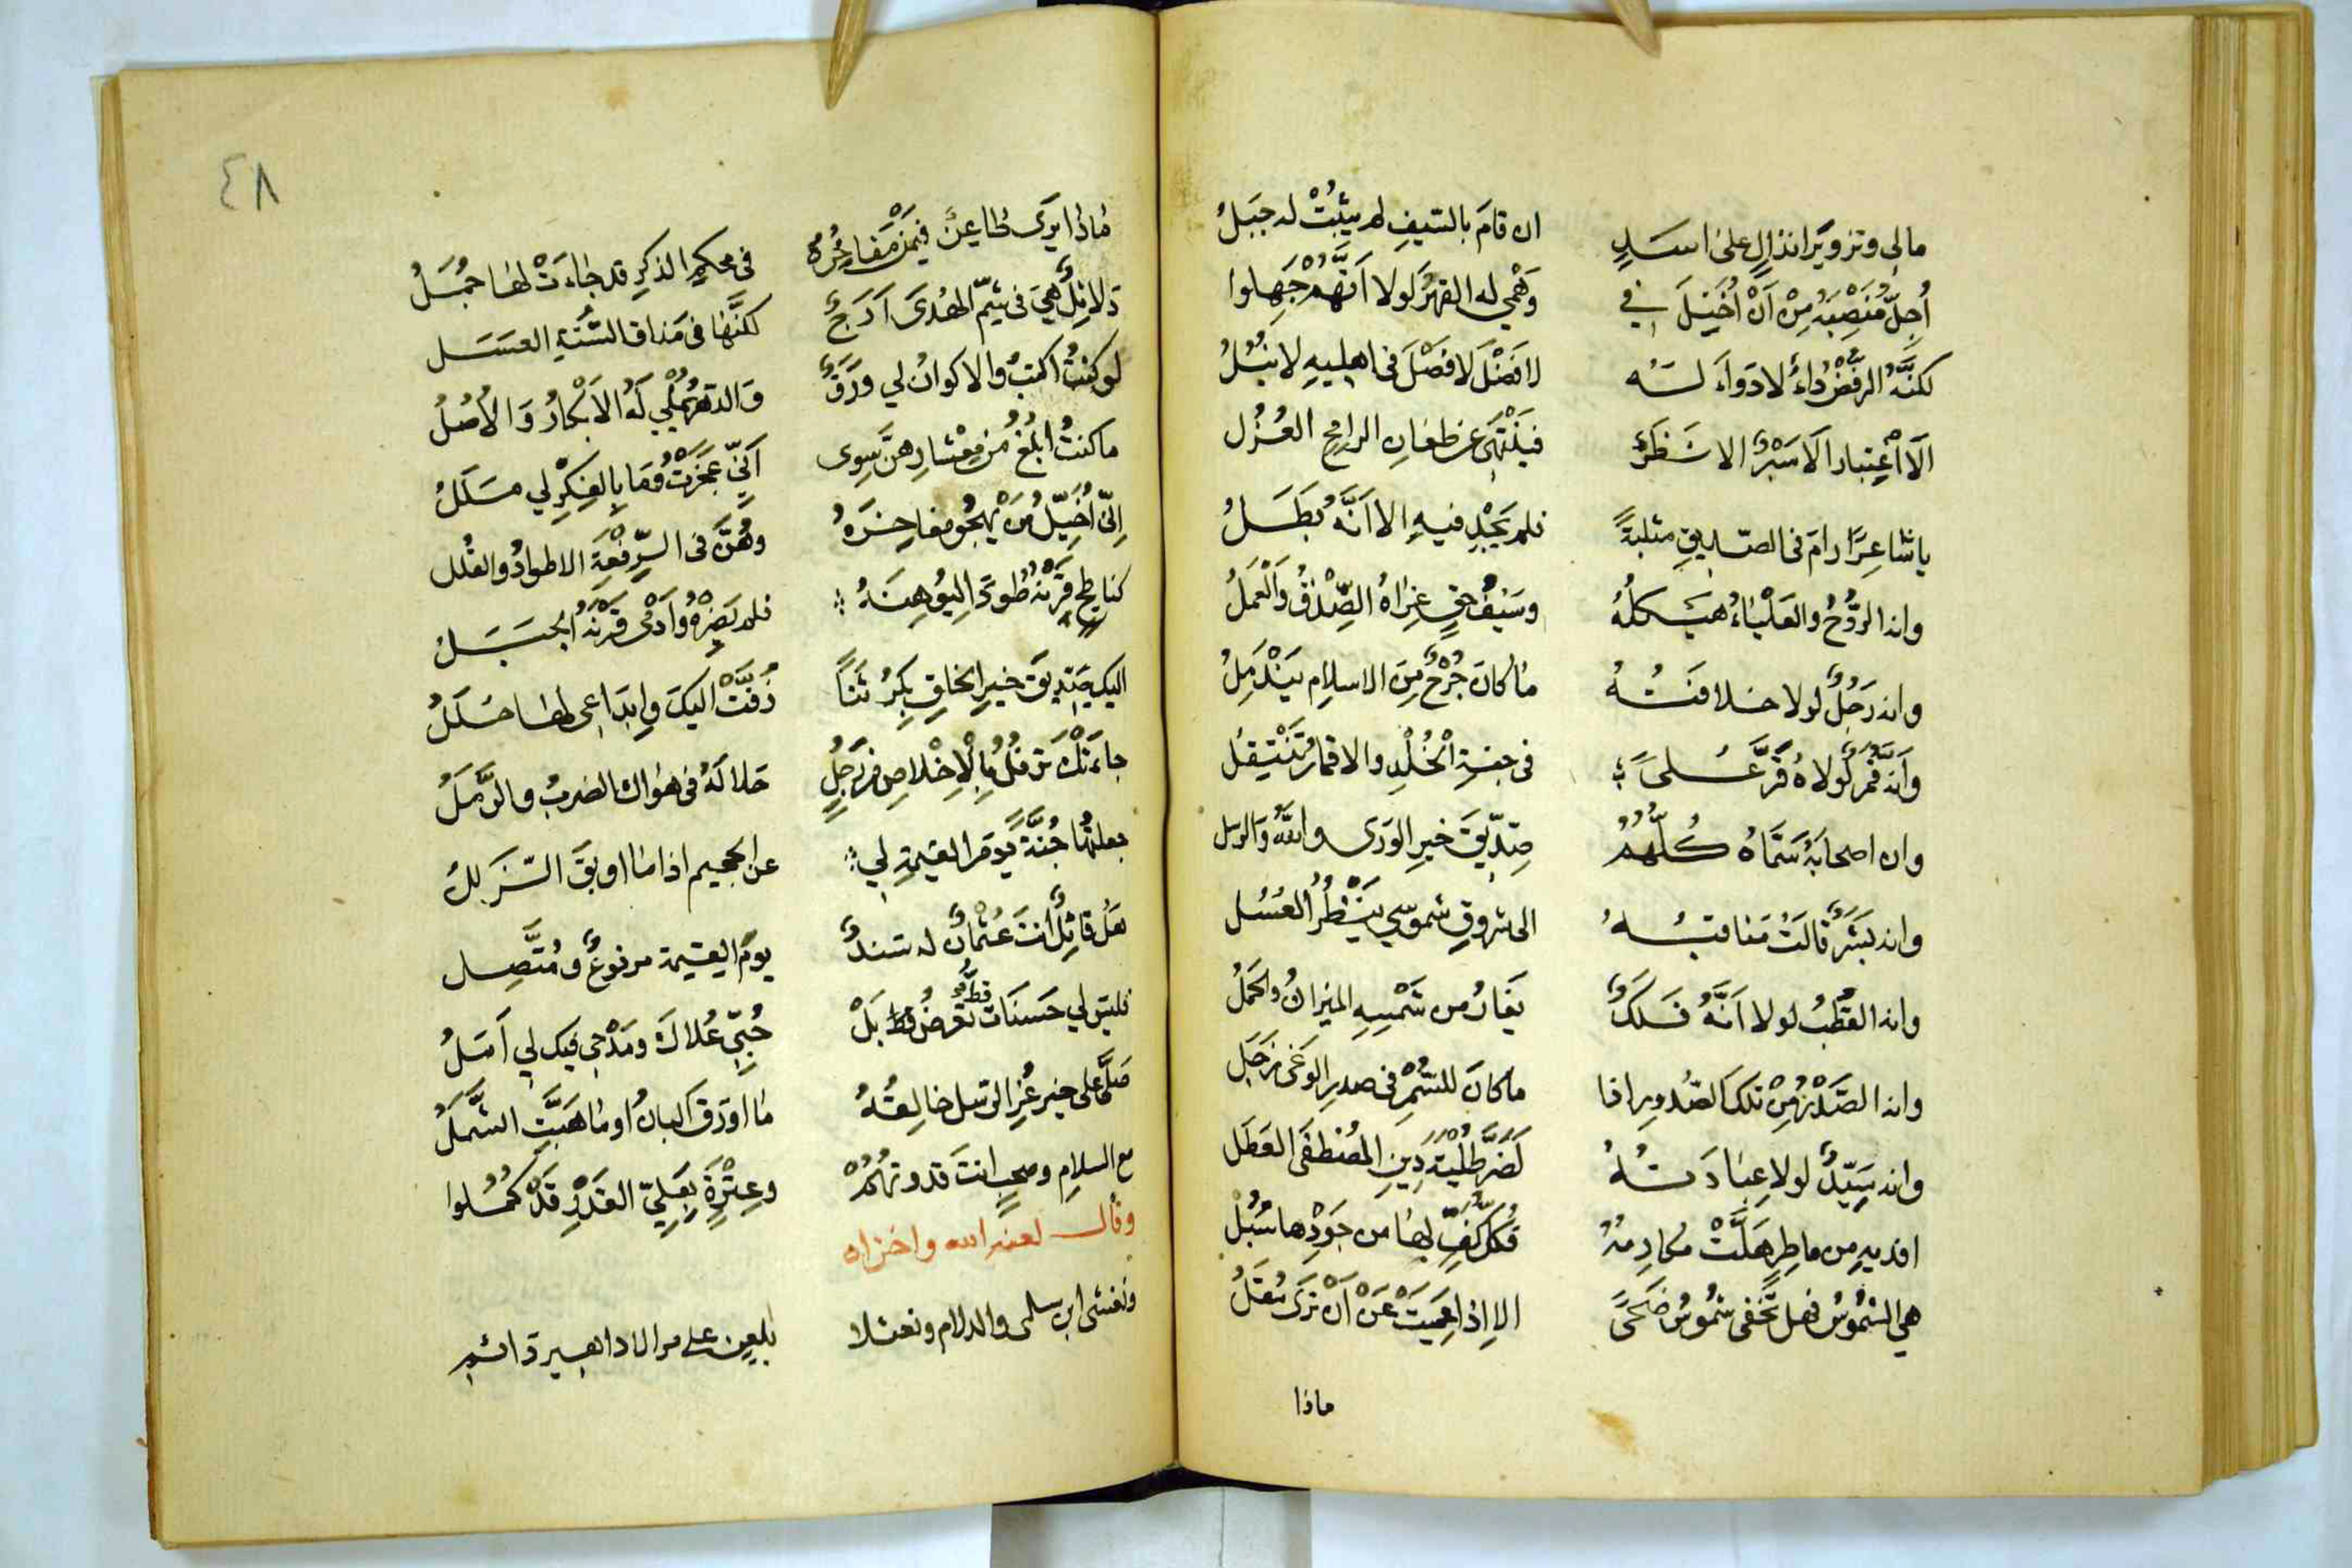 مالي وتزوير انذال على اسد ان قام بالسيف لم يثبت له جبل
أجل منصبه من أن أخيل في وهمي له القهر لولا أنهم جهلوا
لكنه الرفض داء لا دواء له لا فضل لا فصل في اهليه لا نبل
ألا اعتبار ألا سبر الا نظر فينتهي عن طعان الرامح العزل
يا شاعرا رام في الصديق مثلبة فلم يجد فيه الا أنه بطل
وانه الروح والعلياء هيكله وسيف حق غراه الصدق والعمل
وانه رجل لولا خلافته ما كان جرح من الاسلام يندمل
وأنه قمر لولاه قر على في جنة الخلد والاقمار تنتقل
وان اصحابه سماه كلهم صديق خير الورى والله والرسل
وانه بشر قالت مناقبه الى شروق شموسي ينظر العسل
وانه القطب لولا أنه فلك يغار من شمسه الميزان والحمل
وانه الصدر من تلك الصدور اذا ما كان للسمر في صدر الوغى زجل
وانه سيد لولا عبادته لضر طلبة دين المصطفى العطل
افديه من ماطر هلت مكارمه فكل كف لها من جودها سبل
هي الشموس فهل تخفى شموس ضحى الا اذا عميت عن أن ترى مقل
ماذا
٤٨
ماذا يرى طاعن فيمن مفاخره في محكم الذكر قد جاءت لها جمل
دلائل هي في شم الهدى أرج لكنها في مذاق السنة العسل
لو كنت اكتب والاكوان لي ورق والدهر يملي له الابكار والاصل
ما كنت ابلغ من معشارهن سوى أني عجزت وما بالفكر لي ملل
اني أخيل من يهجو مفاخره وهن في الرفعة الاطواد والقلل
كناطح قرنه طودا ليوهنه فلم يضره وأدمى قرنه الجبل
اليك صديق خير الخلق بكر ثنا زفت اليك وابداعي لها حلل
جاءتك ترفل بالاخلاص من رجل حلا له في هواك الضرب والرمل
جعلتها جنة يوم القيمة لي عن الجحيم اذا ما اوبق الزلل
هل قائل انت عثمان له سند يوم القيمة مرفوع ومتصل
فليس لي حسنات تعرض قط بل حبي علاك ومدحي فيك لي أمل
قط
صلى على خير غر الرسل خالقه ما اورق البان او ما هبت الشمل
مع السلام وصحب انت قدوتهم وعترة بعلي القدر قد كملوا
وقال لعنه الله واخزاه
ونغشى ابن سلمى والدلام ونعثلا بلعن على مر